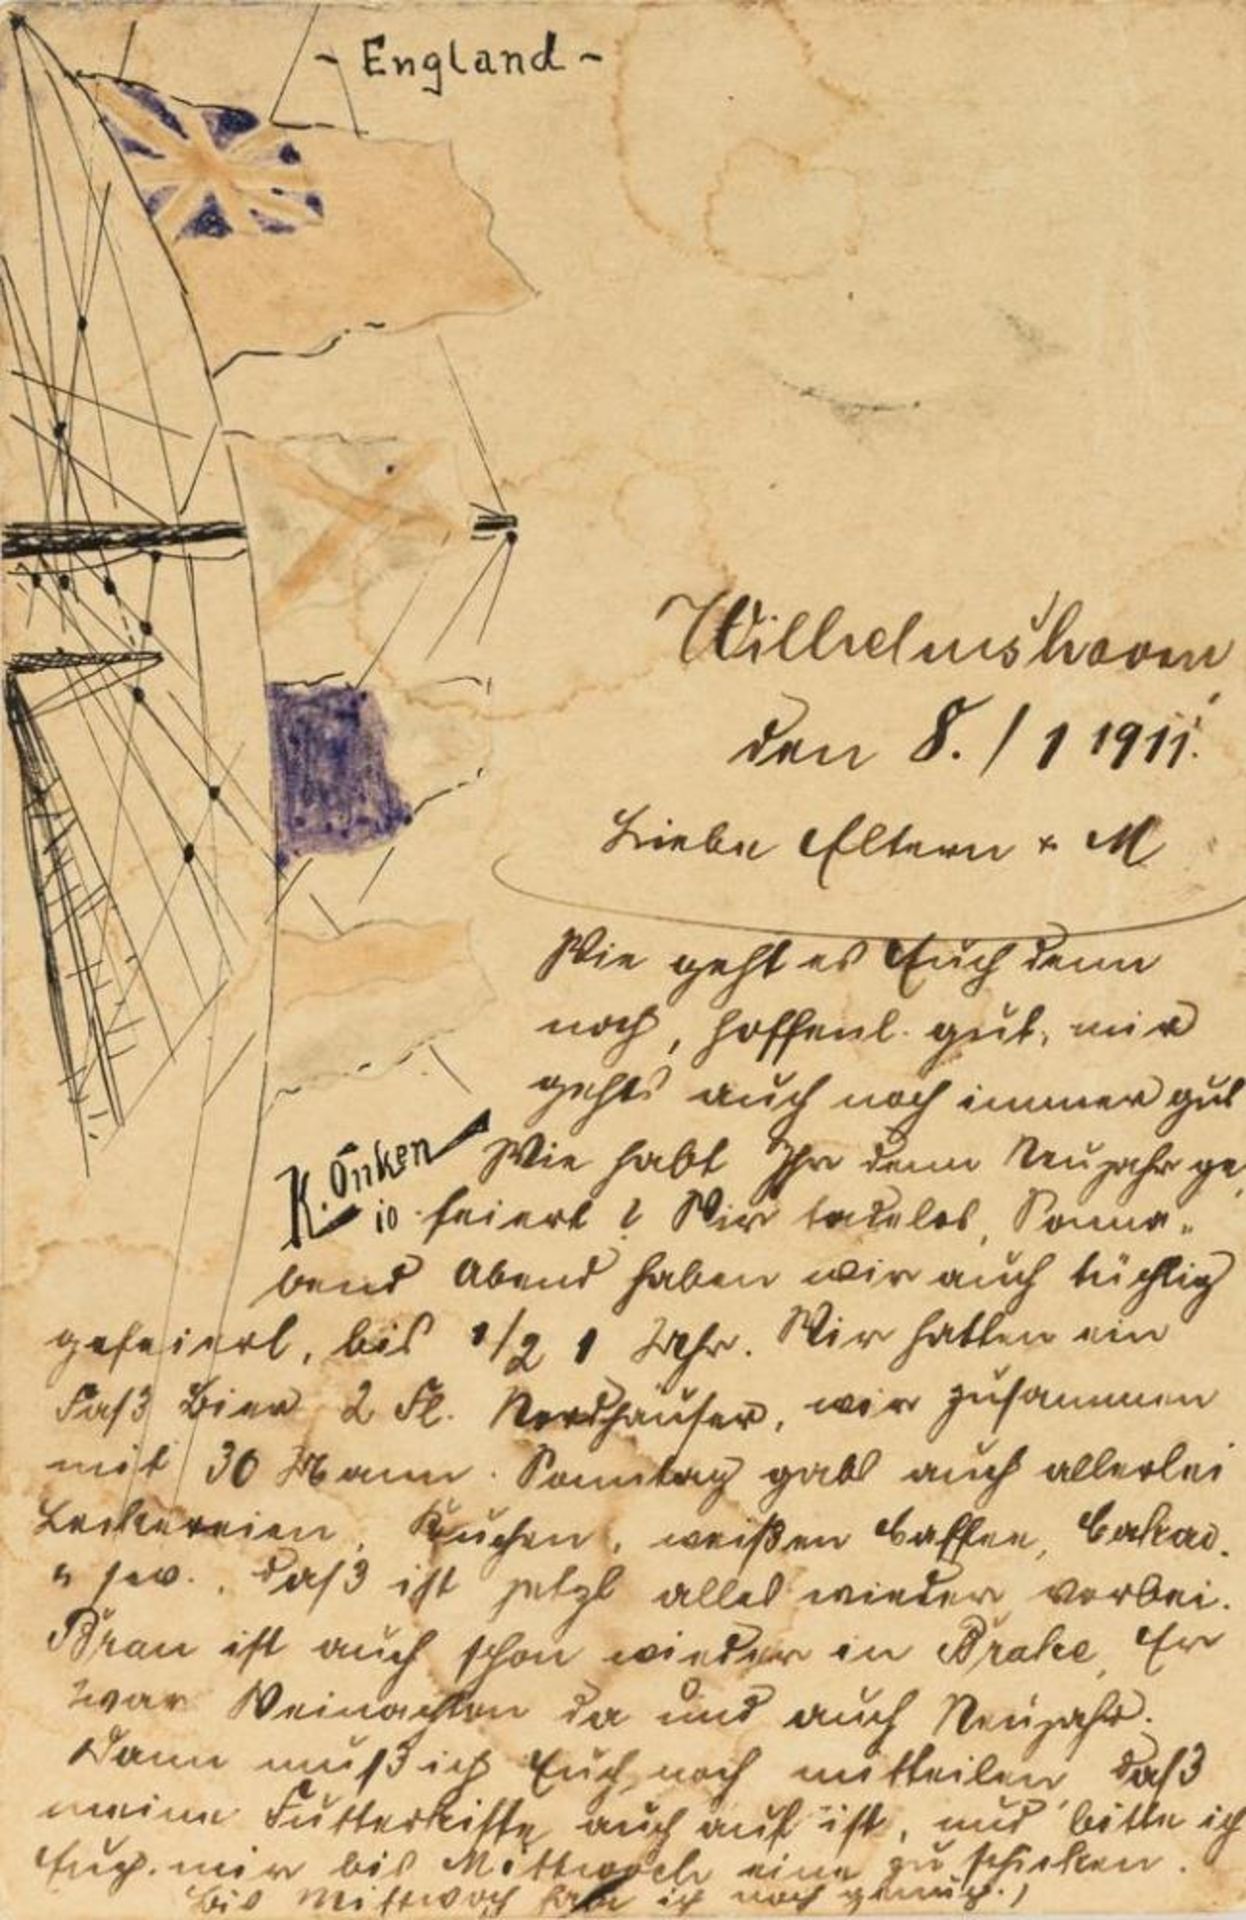 - England -
Wilhelmshaven
den 8./1 1911.
Liebe Eltern + M
Wie geht es Euch denn
noch, hoffenl. gut, mir
gehts auch noch immer gut
Wie habt Ihr denn Neujahr ge
K. Önken
10
feiert? Wir tadelos, Sonna-
bend Abend haben wir auch tüchtig
gefeiert, bis 1/2 1 Uhr. Wir hatten ein
Faß Bier 2 Fl. Nordhäuser, wir zusammen
mit 30 Mann. Sonntag gabs auch allerlei
Leckereien, Kuchen, weißen Caffee, Cakao.
u sw., daß ist jetzt alles wieder vorbei.
Bran ist auch schon wieder in Brake, Er
war Weinachten da und auch Neujahr.
Dann muß ich Euch noch mitteilen, daß
meine Futterkiste auch auf ist, und bitte ich
Euch mir bis Mittwoch eine zu schicken.
bis Mittwoch habe ich noch genug.)